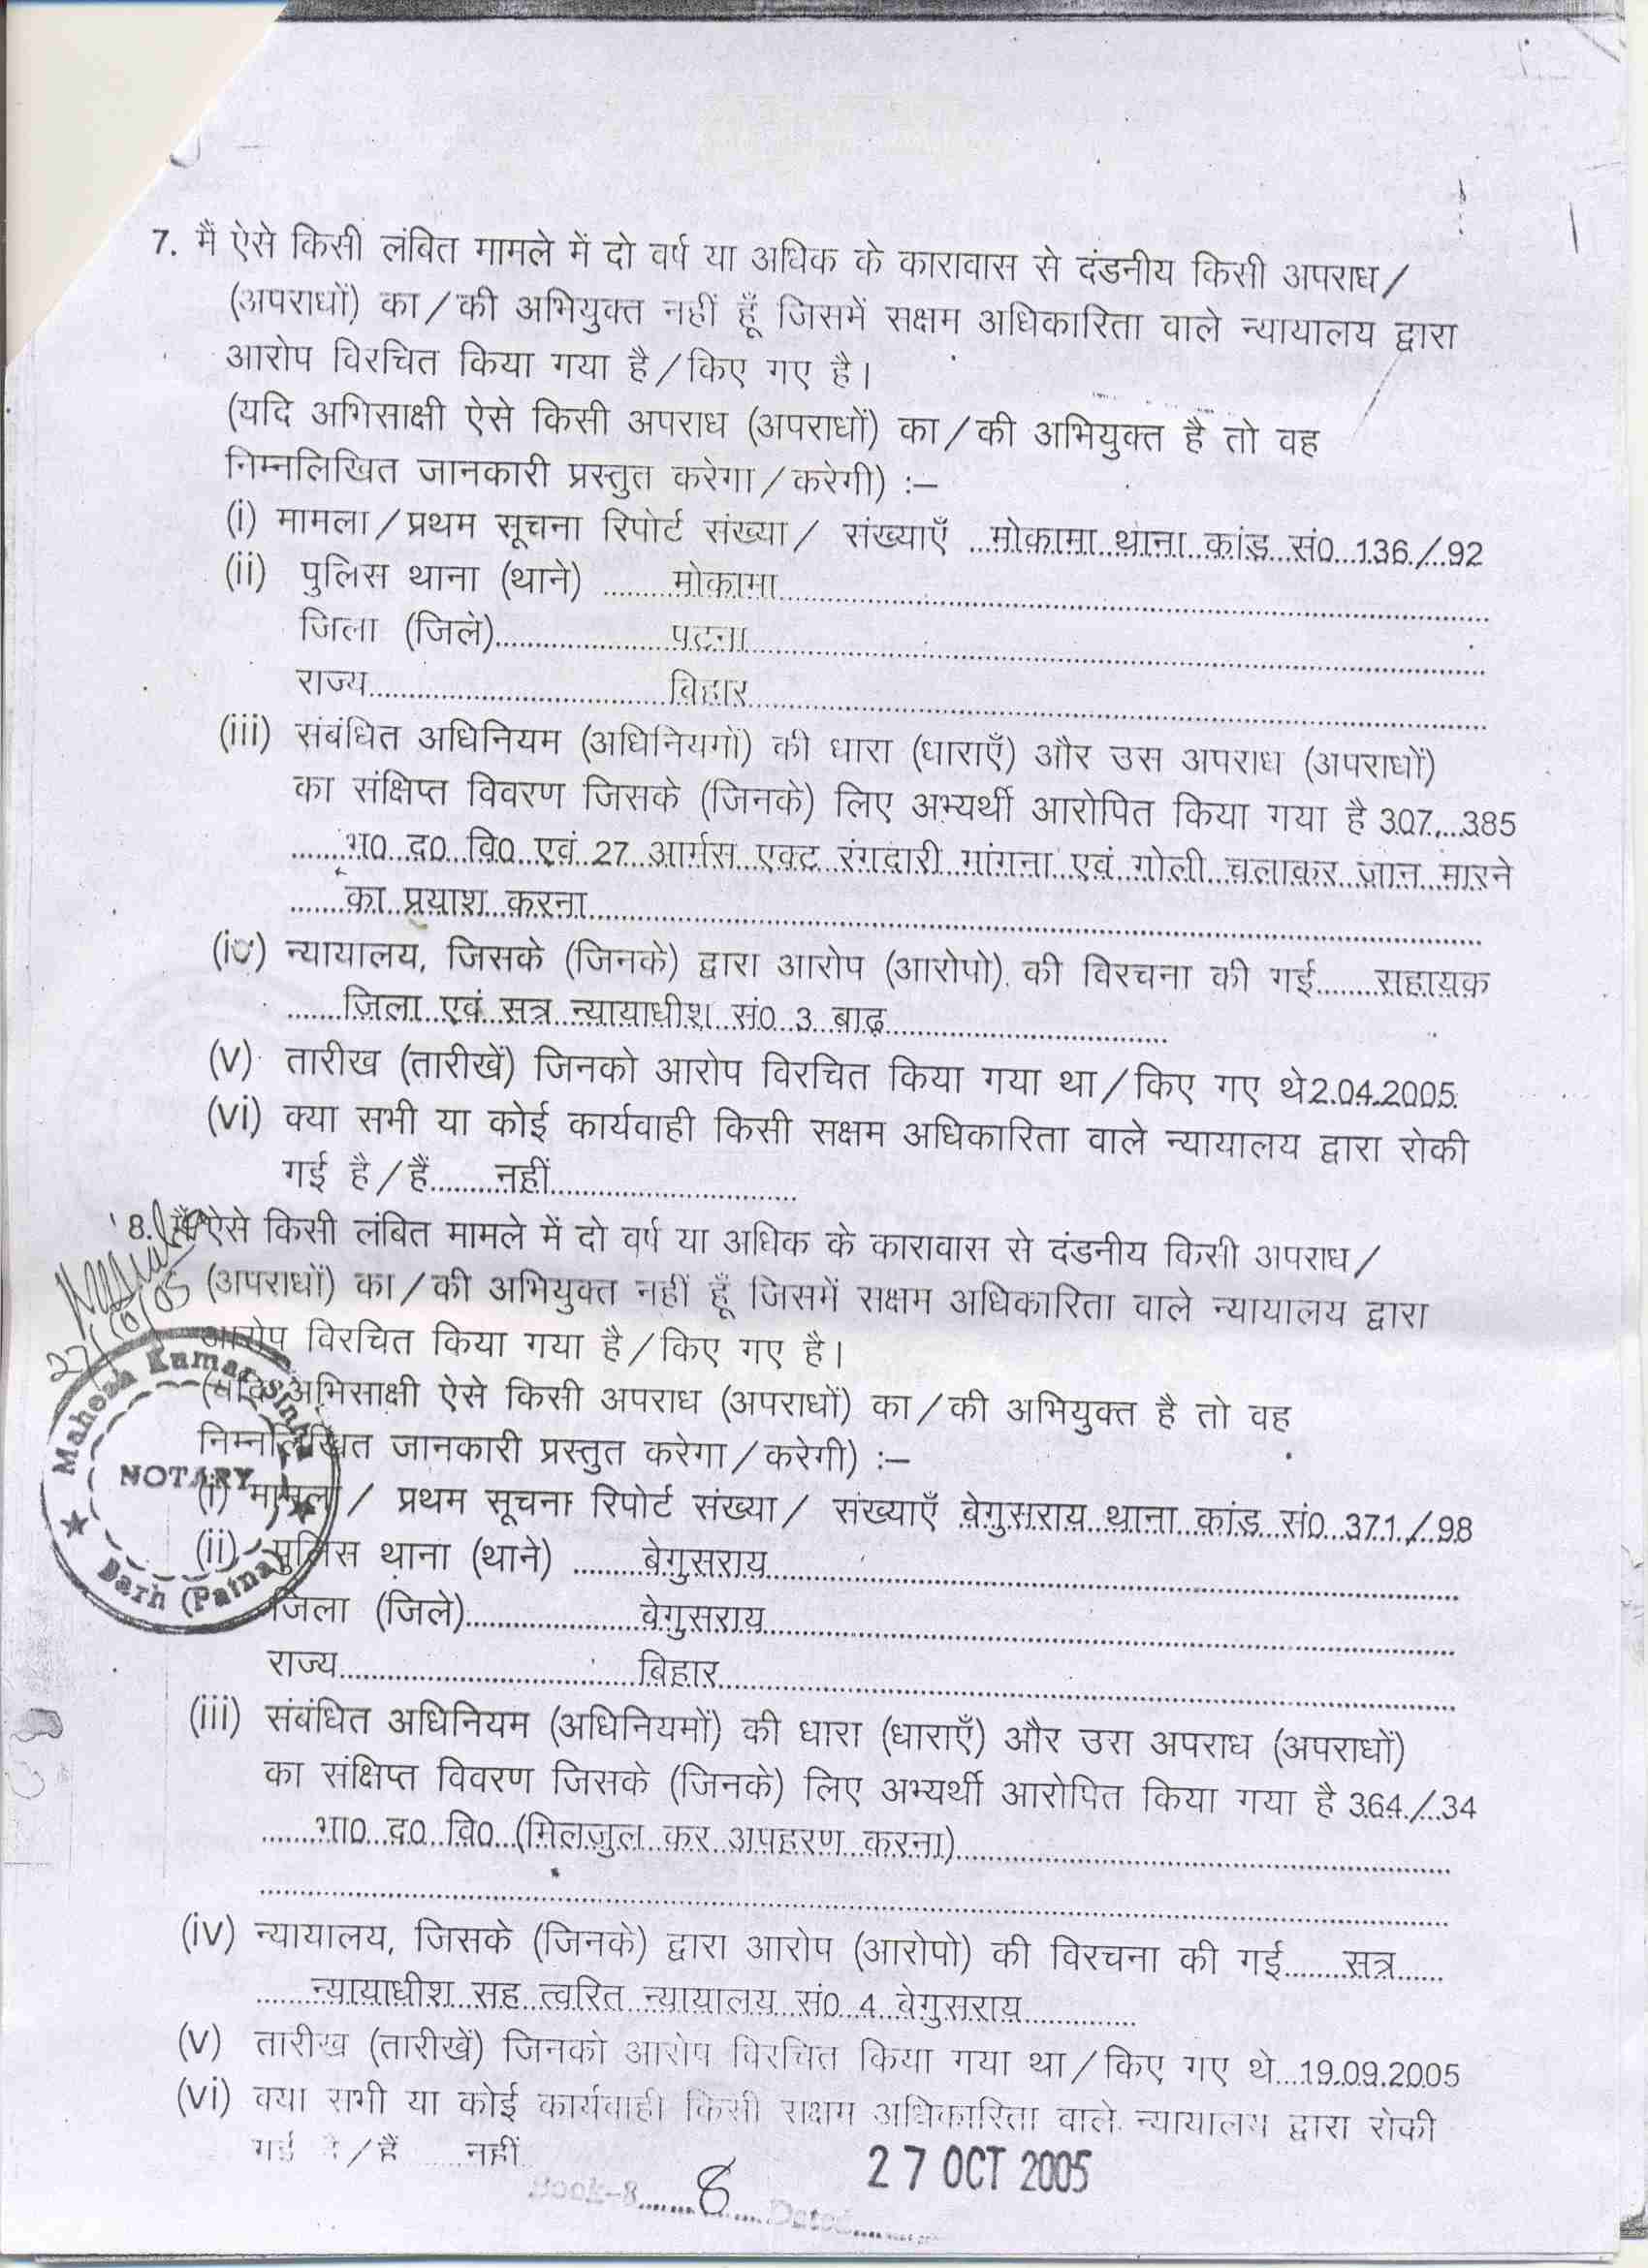 7. मैं ऐसे किसी लंबित मामले में दो वर्ष या अधिक के कारावास से दंडनीय किसी अपराध/
(अपराधों) का/की अभियुक्त नहीं हूँ जिसमें सक्षम अधिकारिता वाले न्यायालय द्वारा
आरोप विरचित किया गया है/किए गए है।
(यदि अभिसाक्षी ऐसे किसी अपराध (अपराधों) का/की अभियुक्त है तो वह
निम्नलिखित जानकारी प्रस्तुत करेगा/करेगी) :–
(i) मामला/प्रथम सूचना रिपोर्ट संख्या/ संख्याएँ ...मोकामा थाना कांड सं0 136/92
(ii) पुलिस थाना (थाने) .........मोकामा.........
जिला (जिले).........पटना.........
राज्य.........बिहार.........
(iii) संबंधित अधिनियम (अधिनियमों) की धारा (धाराएँ) और उस अपराध (अपराधों)
का संक्षिप्त विवरण जिसके (जिनके) लिए अभ्यर्थी आरोपित किया गया है 307, 385
.......भ0 द0 वि0 एवं 27 आर्मस एक्ट रंगदारी मांगना एवं गोली चलाकर जान मारने
.......का प्रयाश करना.........
(iv) न्यायालय, जिसके (जिनके) द्वारा आरोप (आरोपो) की विरचना की गई........सहायक
.......जिला एवं सत्र न्यायाधीश सं0 3 बाढ़.........
(v) तारीख (तारीखें) जिनको आरोप विरचित किया गया था/किए गए थे2.04.2005.
(vi) क्या सभी या कोई कार्यवाही किसी सक्षम अधिकारिता वाले न्यायालय द्वारा रोकी
गई है/हैं.........नहीं.........
8. मैं ऐसे किसी लंबित मामले में दो वर्ष या अधिक के कारावास से दंडनीय किसी अपराध/
(अपराधों) का/की अभियुक्त नहीं हूँ जिसमें सक्षम अधिकारिता वाले न्यायालय द्वारा
27/10/05
आरोप विरचित किया गया है/किए गए है।
(यदि अभिसाक्षी ऐसे किसी अपराध (अपराधों) का/की अभियुक्त है तो वह
निम्नलिखित जानकारी प्रस्तुत करेगा/करेगी) :–
Mahesh Kumar Sinha
NOTARY
Barh (Patna)
(i) मामला/ प्रथम सूचना रिपोर्ट संख्या/ संख्याएँ बेगुसराय थाना कांड सं0 371/98
(ii) पुलिस थाना (थाने) .........बेगुसराय.........
जिला (जिले).........बेगुसराय.........
राज्य.........बिहार.........
(iii) संबंधित अधिनियम (अधिनियमों) की धारा (धाराएँ) और उस अपराध (अपराधों)
का संक्षिप्त विवरण जिसके (जिनके) लिए अभ्यर्थी आरोपित किया गया है 364/34
.......भा0 द0 वि0 (मिलजुल कर अपहरण करना).........
(iv) न्यायालय, जिसके (जिनके) द्वारा आरोप (आरोपो) की विरचना की गई........सत्र......
.......न्यायाधीश सह त्वरित न्यायालय सं0 4 बेगुसराय.........
(v) तारीख (तारीखें) जिनको आरोप विरचित किया गया था/किए गए थे...19.09.2005
(vi) क्या सभी या कोई कार्यवाही किसी सक्षम अधिकारिता वाले न्यायालय द्वारा रोकी
गई है/हैं ......नहीं
27 OCT 2005
Book-8.......8.....Dated.........